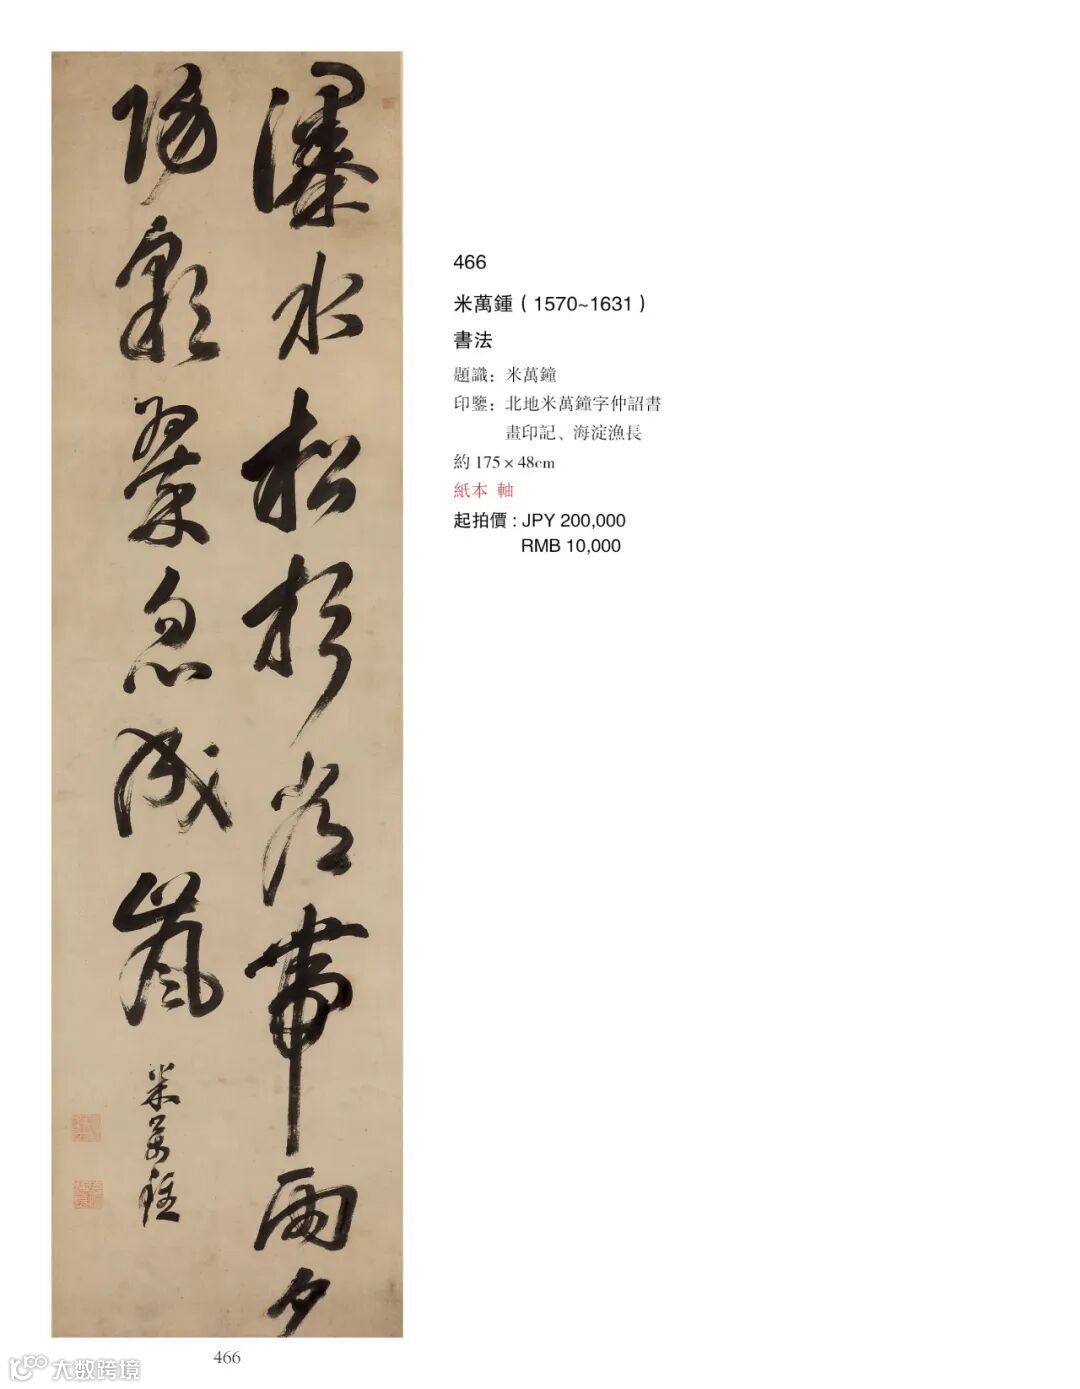 瀑水松杉常帶雨夕
陽彩翠忽成嵐
米萬鍾
466
米萬鍾（1570~1631）
書法
題識：米萬鐘
印鑒：北地米萬鐘字仲詔書
畫印記、海淀漁長
約 175 × 48cm
紙本 軸
起拍價 : JPY 200,000
RMB 10,000
466
大数跨境